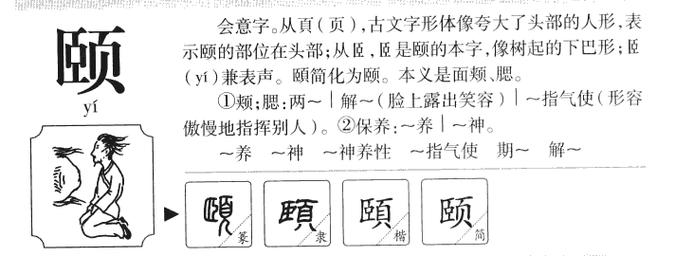 颐
yí
会意字。从頁(页),古文字形体像夸大了头部的人形,表
示颐的部位在头部;从𦣞,𦣞是颐的本字,像树起的下巴形;𦣞
(yí)兼表声。頤简化为颐。本义是面颊、腮。
①颊;腮:两～|解～(脸上露出笑容)|～指气使(形容
傲慢地指挥别人)。②保养:～养|～神。
～养 ～神 ～神养性 ～指气使 期～ 解～
頤 篆 頤 隶 頤 楷 颐 简